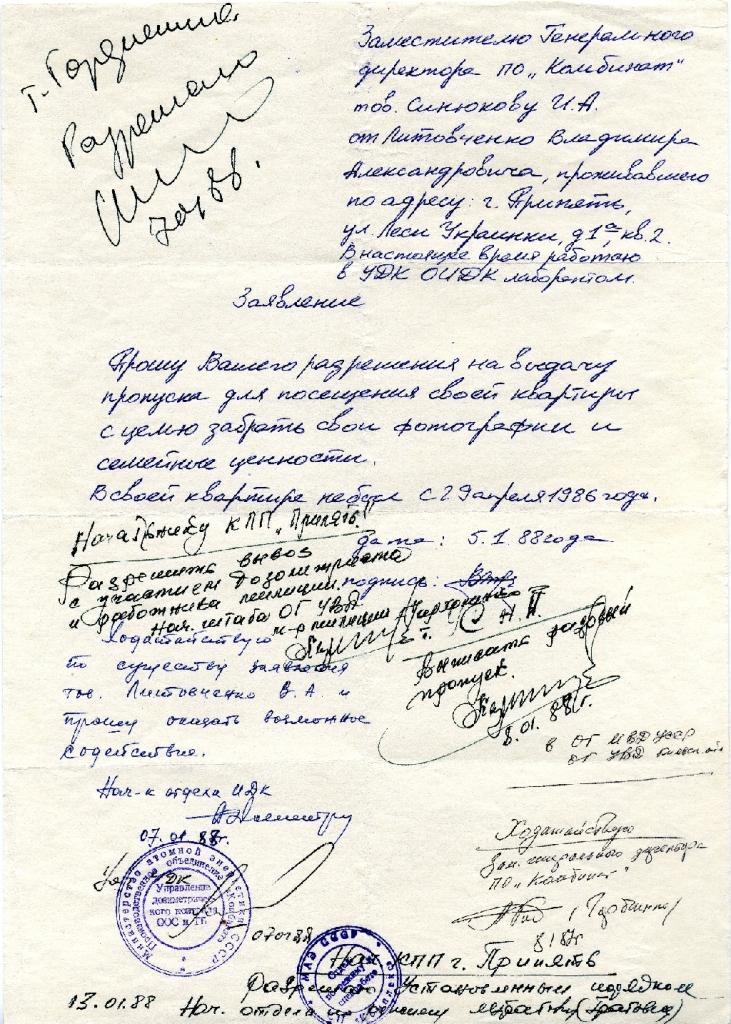 т. Гордиенко.
Разрешаю
7.01.88.
Заместителю Генерального
директора ПО „Комбинат"
тов. Синюкову И.А.
от Литовченко Владимира
Александровича, проживавшего
по адресу: г. Припять,
ул. Леси Украинки, д 1а, кв. 2.
В настоящее время работаю
в УДК ОИДК лаборантом.
Заявление
Прошу Вашего разрешения на выдачу
пропуска для посещения своей квартиры
с целью забрать свои фотографии и
семейные ценности.
В своей квартире не был с 29 апреля 1986 года.
дата: 5.1.88 года
подпись:
Начальнику КПП „Припять"
Разрешить вывоз
с участием дозиметриста
и работника милиции.
Нач. штаба ОГ УВД
м-р милиции
Выписать разовый
пропуск.
8.01.88 г.
Ходатайствую
по существу заявления
тов. Литовченко В.А. и
прошу оказать возможное
содействие.
Нач-к отдела ИДК
07.01.88г.
в ОГ МВД УССР
ОГ УВД
Ходатайствую
Зам. генерального директора
ПО „Комбинат"
УДК
Министерство атомной энергетики СССР
Производственное объединение „Комбинат"
Управление
дозиметричес-
кого контроля
ООС и ТБ
070188
Нач КПП г. Припять
Разрешаю установленным порядком
13.01.88 Нач. отдела